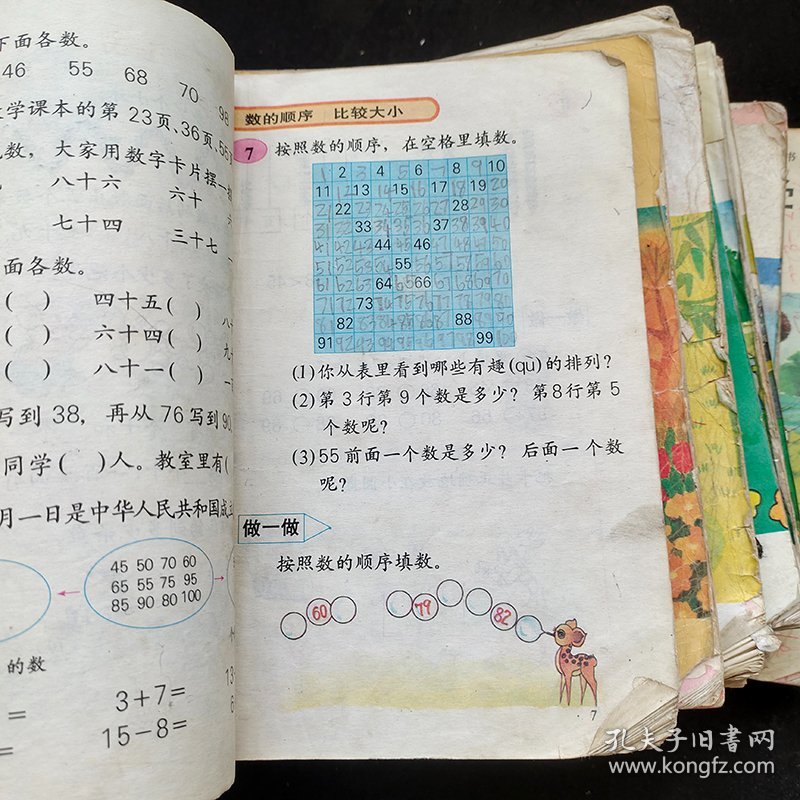 下面各数。
46 55 68 70 98
学课本的第23页、36页、55
数，大家用数字卡片摆一摆
八十六 六十
七十四 三十七
面各数。
( ) 四十五( )
( ) 六十四( )
( ) 八十一( )
写到38，再从76写到90
同学( )人。教室里有(
月一日是中华人民共和国成立
45 50 70 60
65 55 75 95
85 90 80 100
的数
3+7=
15-8=
数的顺序 比较大小
7 按照数的顺序，在空格里填数。
1 2 3 4 5 6 7 8 9 10
11 12 13 14 15 16 17 18 19 20
21 22 23 24 25 26 27 28 29 30
31 32 33 34 35 36 37 38 39 40
41 42 43 44 45 46 47 48 49 50
51 52 53 54 55 56 57 58 59 60
61 62 63 64 65 66 67 68 69 70
71 72 73 74 75 76 77 78 79 80
81 82 83 84 85 86 87 88 89 90
91 92 93 94 95 96 97 98 99
(1)你从表里看到哪些有趣(qù)的排列？
(2)第3行第9个数是多少？第8行第5
个数呢？
(3)55前面一个数是多少？后面一个数
呢？
做一做
按照数的顺序填数。
60 79 82
7
孔夫子旧书网
www.kongfz.com